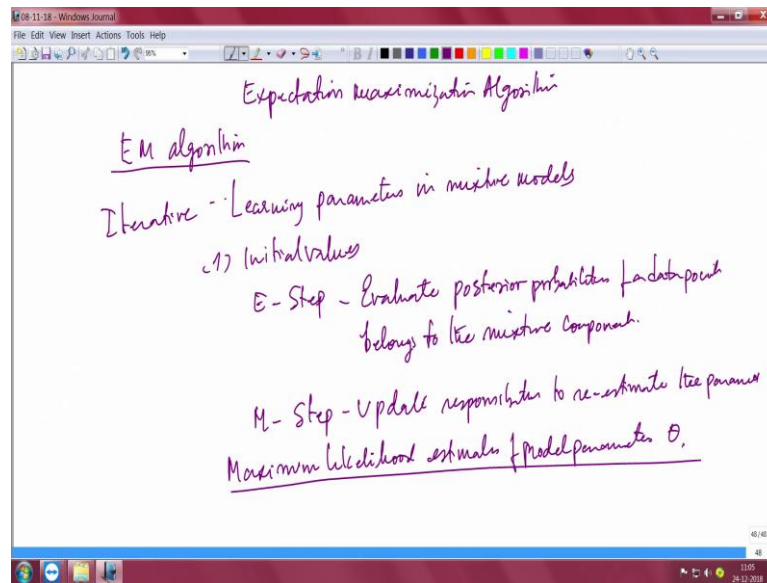 08-11-18 - Windows Journal
File Edit View Insert Actions Tools Help
Expectation maximization Algorithm
EM algorithm
Iterative - Learning parameters in mixture models
(1) Initial values
E - Step - Evaluate posterior probabilities f a data point
belongs to the mixture component.
M - Step - Update responsibilities to re-estimate the parameter
Maximum likelihood estimates f model parameters θ.
48/48
48
11:05
24-12-2018